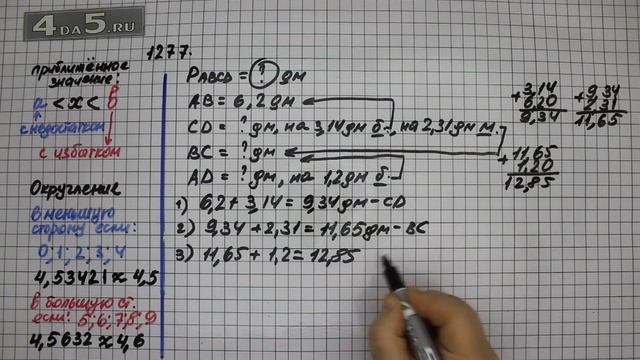 4DA5.RU
приближённое
значение:
а < х < в
с недостатком
с избытком
Округление
в меньшую
сторону если:
0; 1; 2; 3; 4
4,53421 ≈ 4,5
в большую ст.
если: 5; 6; 7; 8; 9
4,5632 ≈ 4,6
1277.
PABCD = ? дм
AB = 6,2 дм
CD = ? дм, на 3,14 дм б., на 2,31 дм м.
BC = ? дм
AD = ? дм, на 1,2 дм б.
1) 6,2 + 3,14 = 9,34 дм - CD
2) 9,34 + 2,31 = 11,65 дм - BC
3) 11,65 + 1,2 = 12,85
+ 3,14
6,20
9,34
+ 9,34
2,31
11,65
+ 11,65
1,20
12,85